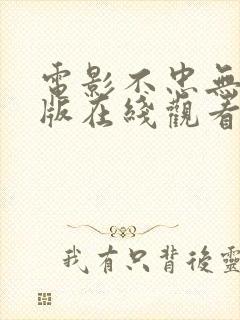 電影不忠無
版在綫觀看
我有只背後靈